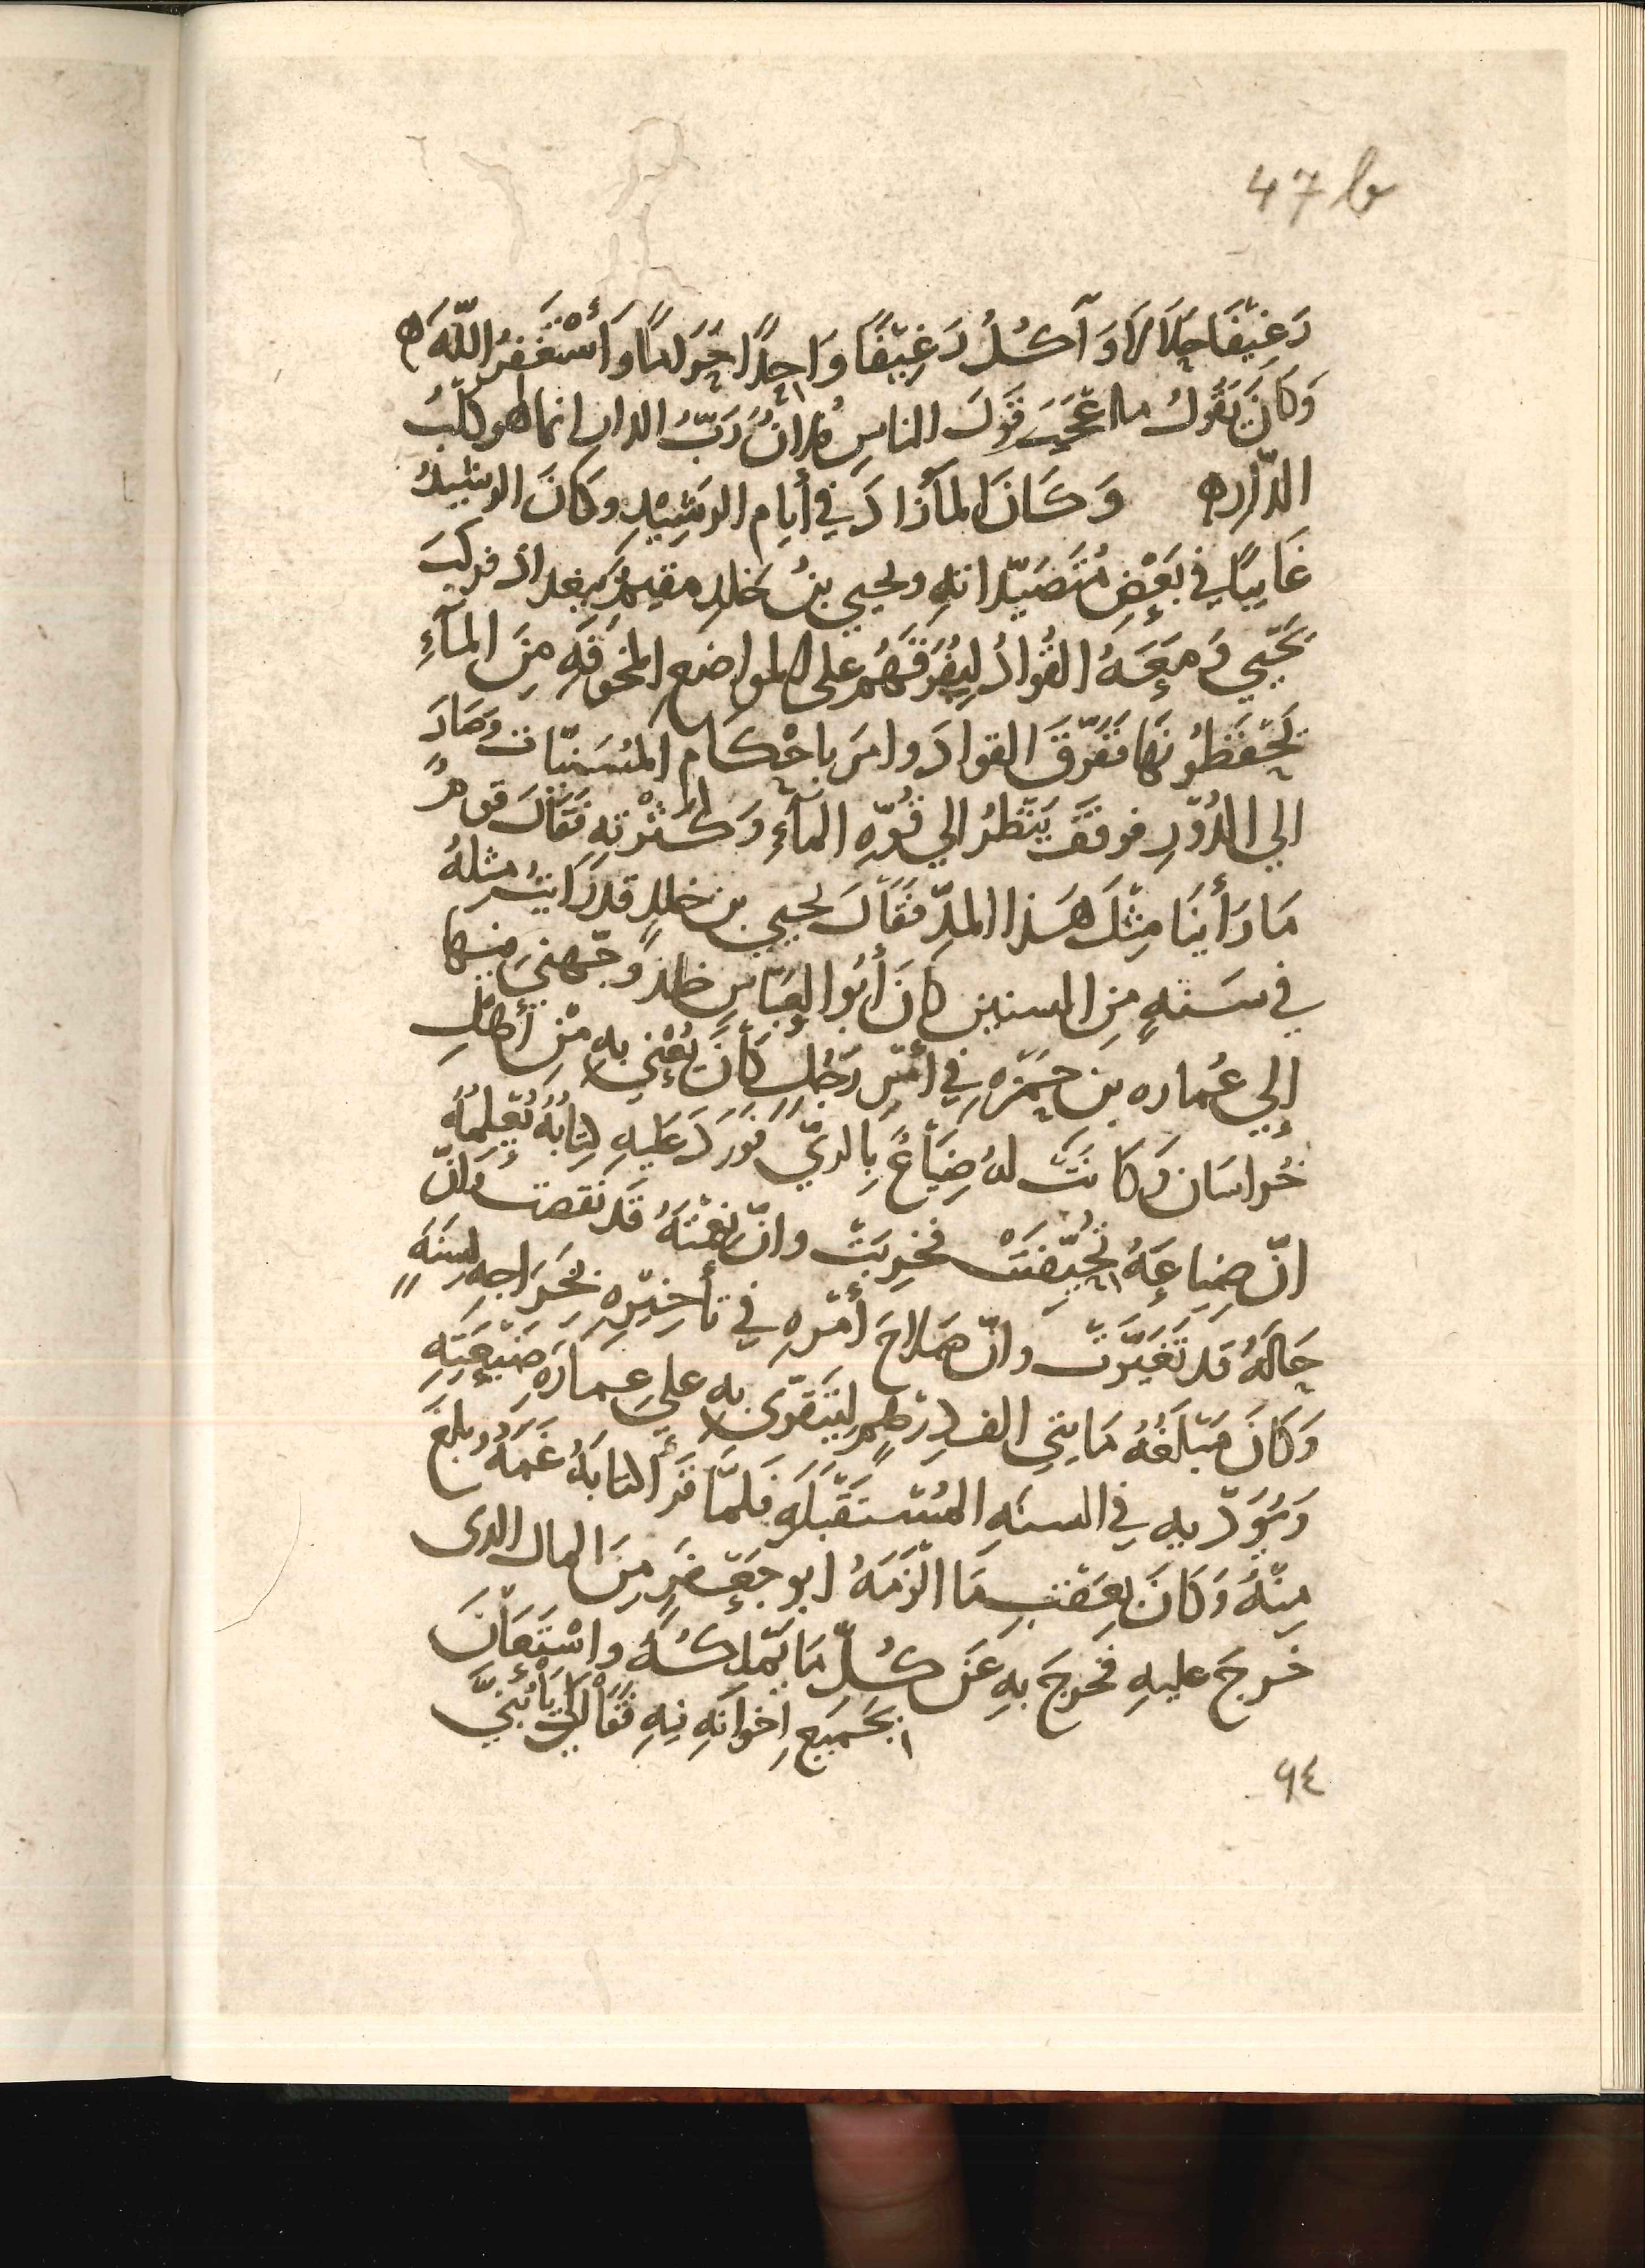 47b
رَغِيْفًا حَلَالًا وَآكُلُ رَغِيْفًا وَاحِدًا حَرَامًا وَأَسْتَغْفِرُ اللّهَ ه
وَكَانَ يَقُولُ ما اعْجَبَ قَوْلَ الناسِ فُلانٌ رَبُّ الدارِ انما هو كلْبُ
الدّار ه وَكَانَ المآزَادَ في أيام الرَشِيْدِ وكَانَ الرشيدُ
غَايِبًا في بَعْضِ مُتَصَيّداتهِ ويحيي بنُ خلدٍ مقيمٌ ببغداذ فركِبَ
يَحْيي وَمَعَهُ القُوادُ لِيُفَرّقَهُم على المواضع المخوفَهِ مِنَ المآءِ
يَحْفَظُونَها فَفَرّقَ القوادَ وامرَ باحْكَامِ المُسَنّيات وَصَارَ
الي الدُورِ فوقَفَ يَنْظُرُ الي قُوّهِ المآءِ وَكَثْرَتهِ فَقَالَ قومٌ
مَا رَأَيْنَا مِثْلَ هَذا المدّ فَقَالَ يحيي بن خلدٍ قد رَايتُ مثلهُ
في سَنهٍ مِنَ السنين كَانَ أبُو العَبّاسِ خلدٌ وَجّهني فيها
إلي عُماره بن حَمْزهِ في أمْرِ رَجُلٍ كَانَ يُعْنَي بهِ مْن أهْلِ
خُراسَان وَكَانَتْ لهُ ضِيَاعٌ بِالريّ فَوَرَدَ عَليهِ كِتَابُهُ يُعْلِمُهُ
انّ ضِيَاعَهُ تُحُيّفَتْ فخَرِبَتْ وانّ نِعْمَتَهُ قَد نقصت وَانّ
حَالَهُ قد تَغَيّرَتْ وانّ صَلاحَ أمْرِهِ في تأخِيْرِهِ بخَرَاجِهِ لِسَنهٍ
وَكَانَ مَبْلَغُهُ مَايتي الف دِرْهمٍ ليَتَقَوّى به علي عِمَارَهِ ضَيْعَتِهِ
وَيُوَدّيهِ في السنهِ المُسْتَقْبَلَهِ فَلمّا قَرَأ كتابَهُ غَمّهُ وبلغَ
مِنْهُ وَكَانَ بِعَقِبِ مَا الْزَمَهُ ابو جَعْفَرٍ مِنَ المال الذى
خَرجَ عليهِ فخرجَ بهِ عَن كُلّ مَا يَمْلِكُهُ واسْتَعَانَ
بجَميعِ اِخوانَهِ فِيهِ فَقَالَ لي يَا بُنيَّ
٩٤